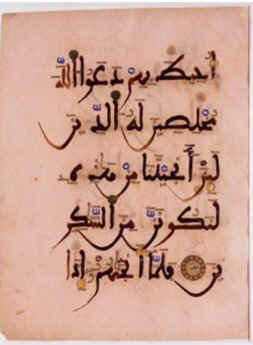 أحيط بهم دعوا الله
مخلصين له الدين
لئن أنجيتنا من هذه
لنكونن من الشكر
ين فلما أنجهم إذا